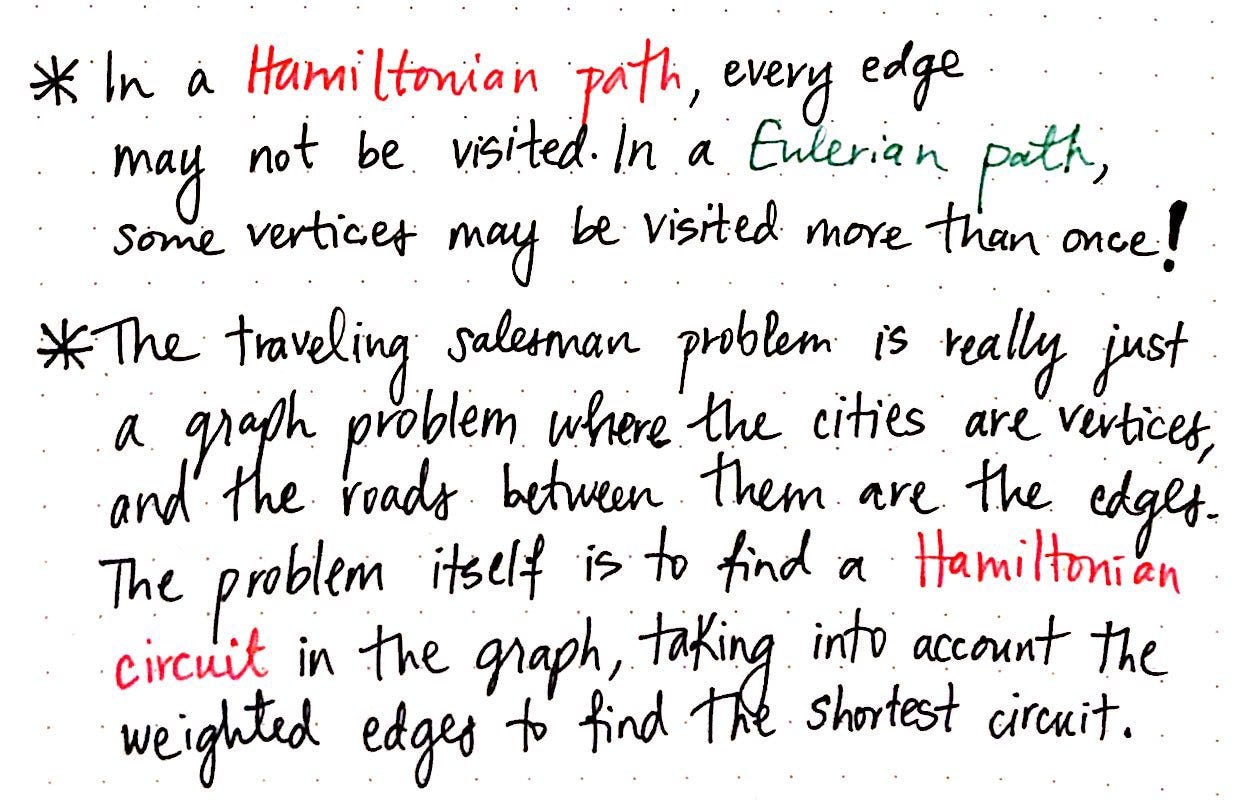 * In a Hamiltonian path, every edge
may not be visited. In a Eulerian path,
some vertices may be visited more than once!
* The traveling salesman problem is really just
a graph problem where the cities are vertices,
and the roads between them are the edges.
The problem itself is to find a Hamiltonian
circuit in the graph, taking into account the
weighted edges to find the shortest circuit.